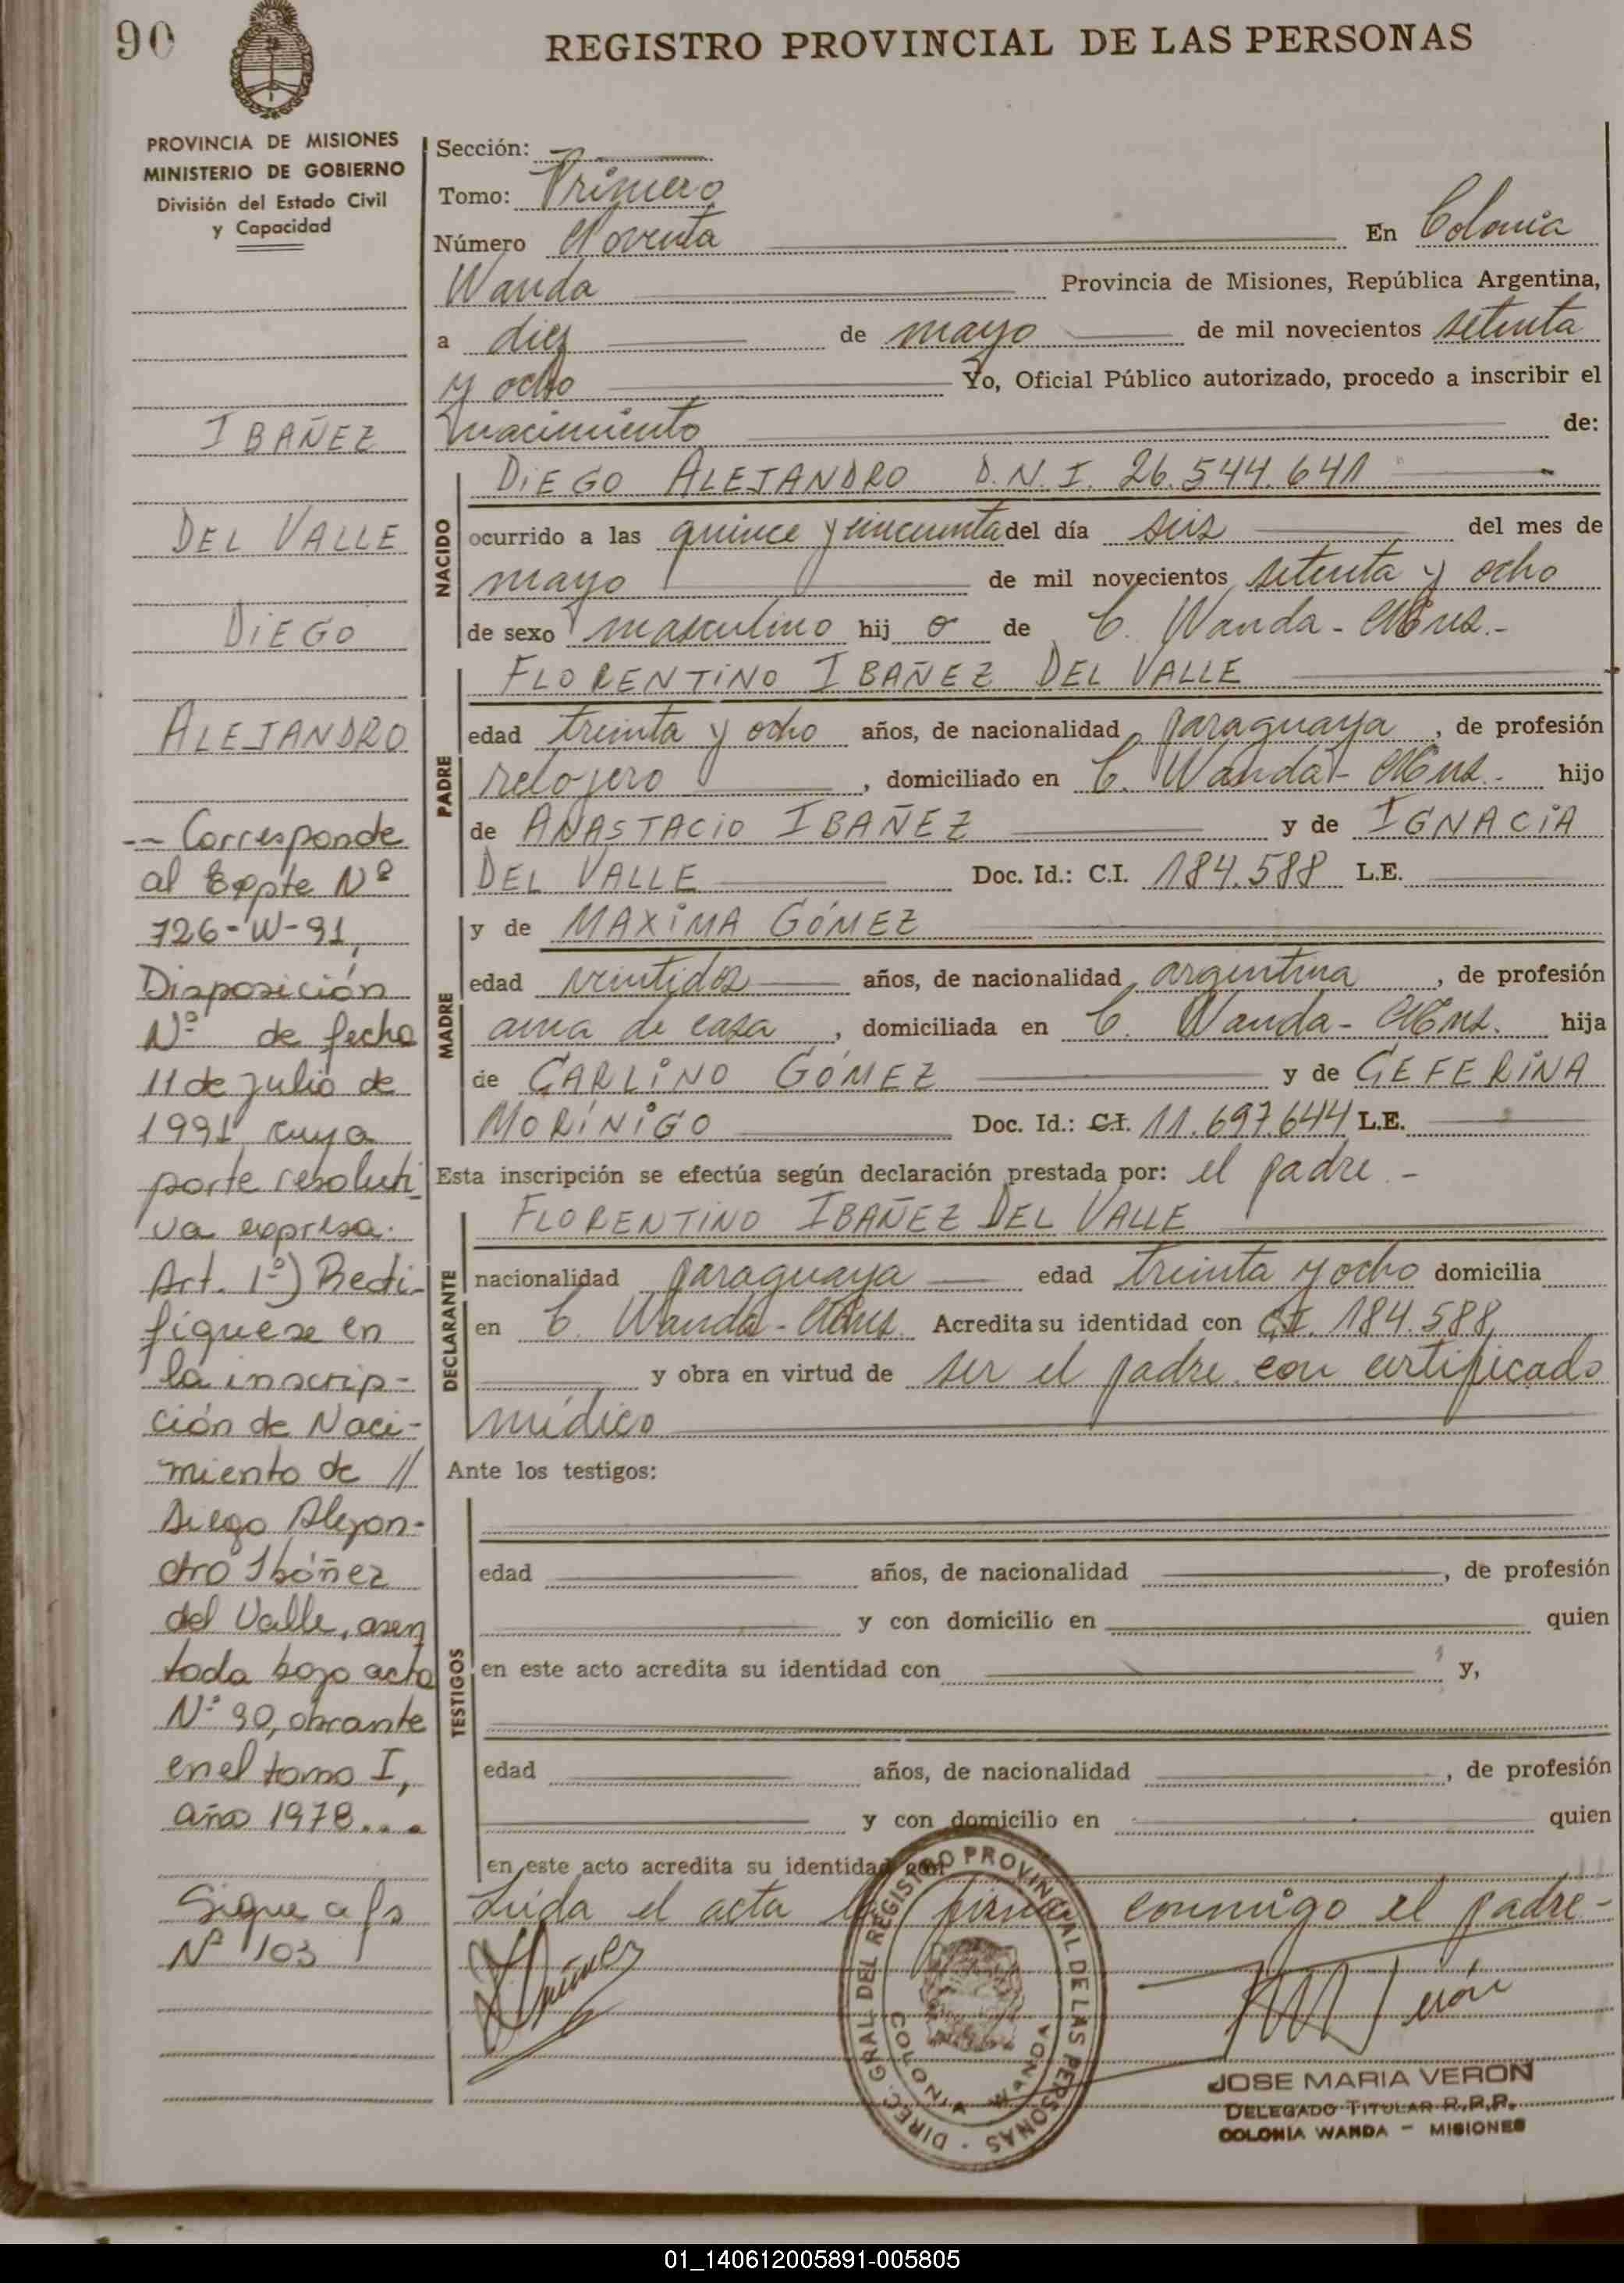 90
REGISTRO PROVINCIAL DE LAS PERSONAS
PROVINCIA DE MISIONES
MINISTERIO DE GOBIERNO
División del Estado Civil
y Capacidad
IBAÑEZ
DEL VALLE
DIEGO
ALEJANDRO
-- Corresponde
al Expte Nº
726-W-91,
Disposición
Nº de fecha
11 de julio de
1991 cuya
parte resoluti-
va expresa:
Art. 1º) Recti-
fíquese en
la inscrip-
ción de Naci-
miento de //
Diego Alejan-
dro Ibáñez
del Valle, asen
tada bajo acta
Nº 90, obrante
en el tomo I,
año 1978...
Sigue a fs
Nº 103
Sección:
Tomo: Primero
Número Noventa En Colonia
Wanda Provincia de Misiones, República Argentina,
a diez de mayo de mil novecientos setenta
y ocho Yo, Oficial Público autorizado, procedo a inscribir el
nacimiento de:
NACIDO
DIEGO ALEJANDRO D.N.I. 26.544.641
ocurrido a las quince y cincuenta del día seis del mes de
mayo de mil novecientos setenta y ocho
de sexo masculino hij o de C. Wanda - Mnes.-
FLORENTINO IBAÑEZ DEL VALLE
PADRE
edad treinta y ocho años, de nacionalidad paraguaya, de profesión
relojero, domiciliado en C. Wanda - Mnes. hijo
de ANASTACIO IBAÑEZ y de IGNACIA
DEL VALLE Doc. Id.: C.I. 184.588 L.E.
y de MAXIMA GÓMEZ
MADRE
edad veintidos años, de nacionalidad argentina, de profesión
ama de casa, domiciliada en C. Wanda - Mnes. hija
de CARLINO GÓMEZ y de CEFERINA
MORÍNIGO Doc. Id.: C.I. 11.697.644 L.E.
Esta inscripción se efectúa según declaración prestada por: el padre.-
DECLARANTE
FLORENTINO IBAÑEZ DEL VALLE
nacionalidad paraguaya edad treinta y ocho domicilia
en C. Wanda - Mnes. Acredita su identidad con C.I. 184.588,
y obra en virtud de ser el padre con certificado
médico
Ante los testigos:
TESTIGOS
edad años, de nacionalidad , de profesión
y con domicilio en quien
en este acto acredita su identidad con y,
edad años, de nacionalidad , de profesión
y con domicilio en quien
en este acto acredita su identidad con
Leída el acta la firma conmigo el padre-
DIREC. GRAL. DEL REGISTRO PROVINCIAL DE LAS PERSONAS
COLONIA WANDA
JOSE MARIA VERON
DELEGADO TITULAR R.P.P.
COLONIA WANDA - MISIONES
01_140612005891-005805